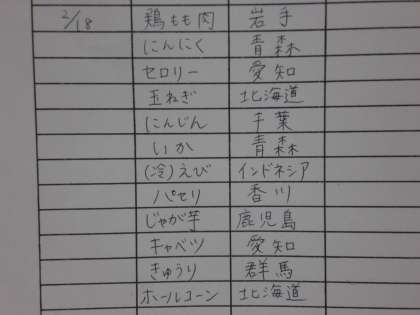 2/18 鶏もも肉 岩手
にんにく 青森
セロリー 愛知
玉ねぎ 北海道
にんじん 千葉
いか 青森
(冷)えび インドネシア
パセリ 香川
じゃが芋 鹿児島
キャベツ 愛知
きゅうり 群馬
ホールコーン 北海道